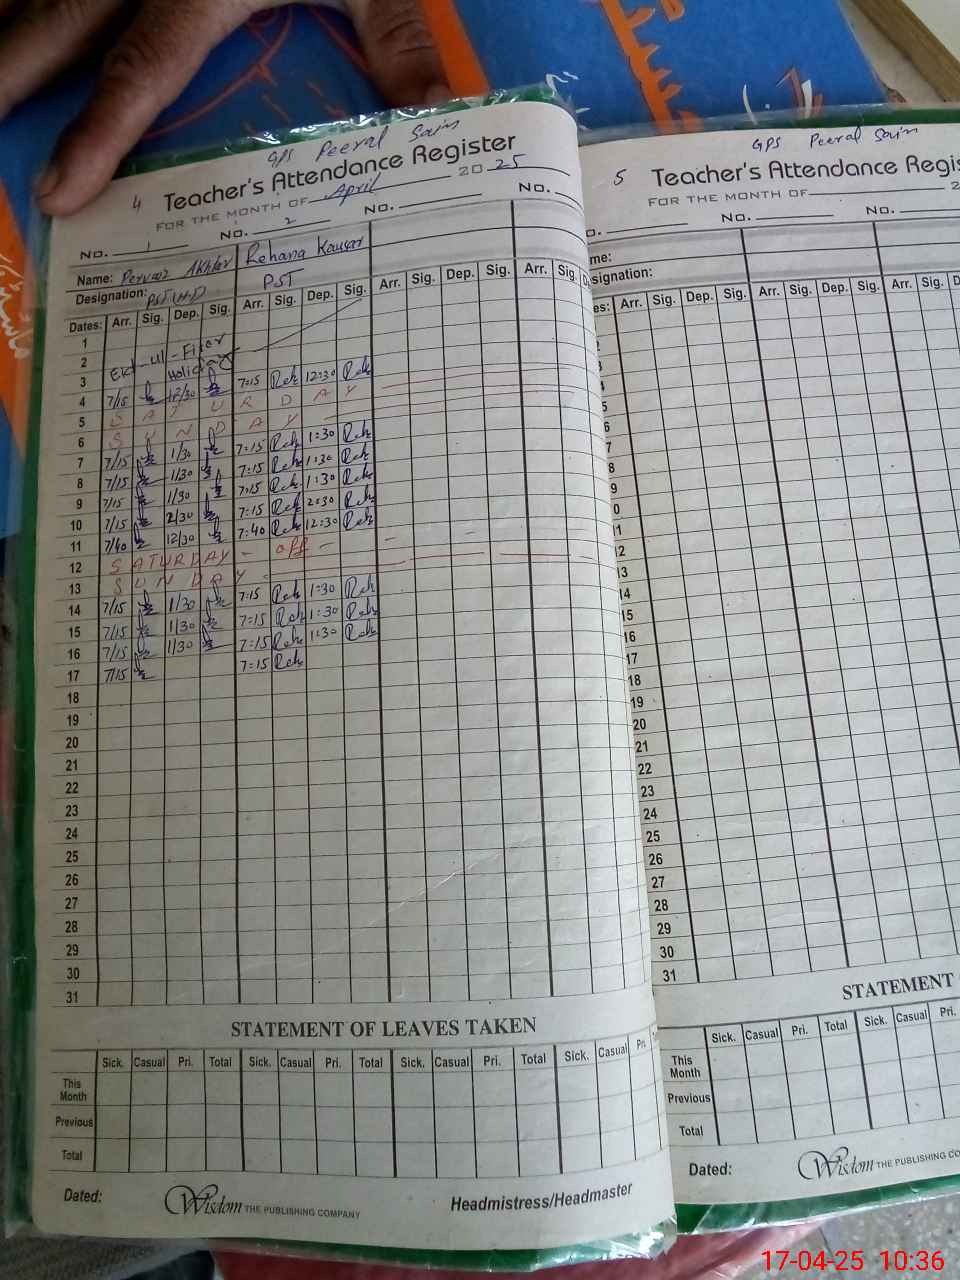 GPS Peeral Sain
Teacher's Attendance Register
4
FOR THE MONTH OF April 2025
No. 1 No. 2 No. No.
Name: Pervaiz Akhter Rehana Kausar
Designation: PST (H.D) PST
Dates: Arr. Sig. Dep. Sig. Arr. Sig. Dep. Sig. Arr. Sig. Dep. Sig. Arr. Sig.
1
2 Eid-ul-Fiter
3 Holiday
4 7/15 12/30 7:15 Reh 12:30 Reh
5 SATURDAY
6 SUNDAY
7 7/15 1/30 7:15 Reh 1:30 Reh
8 7/15 1/30 7:15 Reh 1:30 Reh
9 7/15 1/30 7:15 Reh 1:30 Reh
10 7/15 2/30 7:15 Reh 2:30 Reh
11 7/40 12/30 7:40 Reh 12:30 Reh
12 SATURDAY - off -
13 SUNDAY
14 7/15 1/30 7:15 Reh 1:30 Reh
15 7/15 1/30 7:15 Reh 1:30 Reh
16 7/15 1/30 7:15 Reh 1:30 Reh
17 7/15 7:15 Reh
18
19
20
21
22
23
24
25
26
27
28
29
30
31
STATEMENT OF LEAVES TAKEN
Sick. Casual Pri. Total Sick. Casual Pri. Total Sick. Casual Pri. Total Sick. Casual
This Month
Previous
Total
Dated:
Wisdom THE PUBLISHING COMPANY
Headmistress/Headmaster
GPS Peeral Sain
5 Teacher's Attendance Regis
FOR THE MONTH OF 2
No. No.
me:
signation:
es: Arr. Sig. Dep. Sig. Arr. Sig. Dep. Sig. Arr. Sig. D
5
6
7
8
9
0
11
12
13
14
15
16
17
18
19
20
21
22
23
24
25
26
27
28
29
30
31
STATEMENT
Sick. Casual Pri. Total Sick. Casual Pri.
This Month
Previous
Total
Dated:
Wisdom THE PUBLISHING CO
17-04-25 10:36